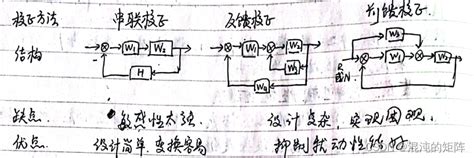 校正方法 串联校正 反馈校正 前馈校正
结构 W₁ W₂ W₁ W₂ W₃
H W₃ W₁ W₂
W₀ R
缺点 敏感性太强 设计复杂,实现困难.
优点. 设计简单 变换容易 抑制扰动性能好
CSDN @混沌的矩阵